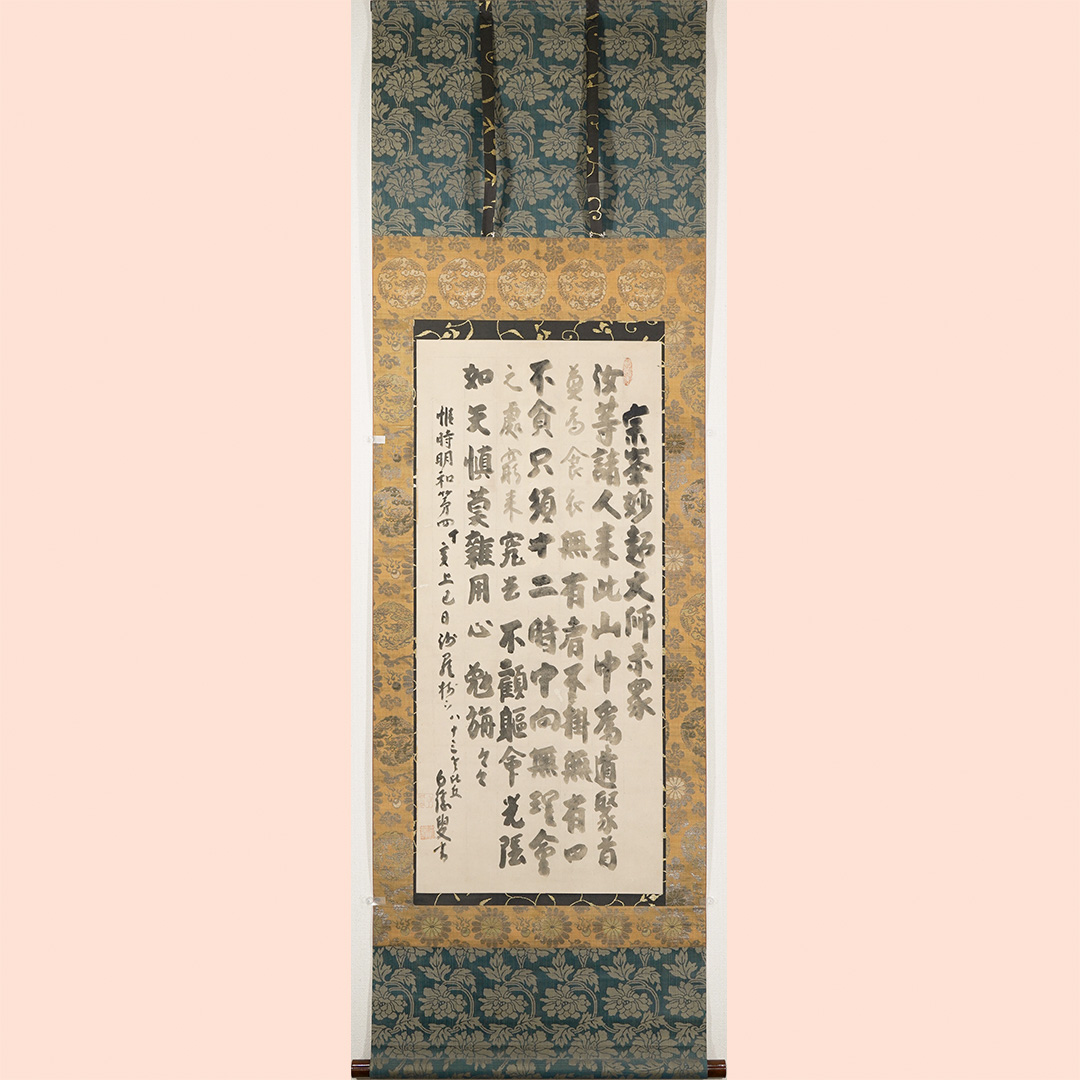 宗峯妙超大師示衆
汝等諸人来此山中為道聚首
莫為食衣無有肩不掛無有口
不貪只須十二時中向無理會
之處窮来究去不顧軀命光陰
如矢慎莫雜用心勉旃々々
惟時明和第四丁亥上巳日沙羅樹下八十三老比丘
白隱叟書